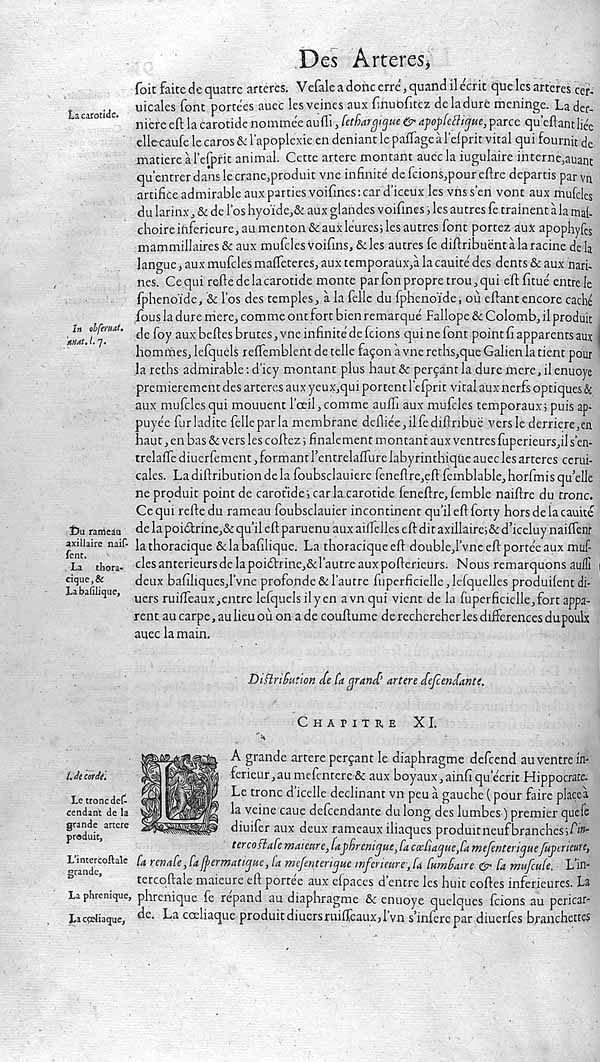 Des Arteres,
ſoit faite de quatre arteres. Veſale a donc erré, quand il écrit que les arteres cer-
uicales ſont portées auec les veines aux ſinuoſitez de la dure meninge. La der-
La carotide.
niere eſt la carotide nommée auſſi, lethargique & apoplectique, parce qu'eſtant liée
elle cauſe le caros & l'apoplexie en deniant le paſſage à l'eſprit vital qui fournit de
matiere à l'eſprit animal. Cette artere montant auec la iugulaire interne, auant
qu'entrer dans le crane, produit vne infinité de ſcions, pour eſtre departis par vn
artifice admirable aux parties voiſines: car d'iceux les vns s'en vont aux muſcles
du larinx, & de l'os hyoïde, & aux glandes voiſines; les autres ſe trainent à la maſ-
choire inferieure, au menton & aux léures; les autres ſont portez aux apophyſes
mammillaires & aux muſcles voiſins, & les autres ſe diſtribuënt à la racine de la
langue, aux muſcles maſſeteres, aux temporaux, à la cauité des dents & aux nari-
nes. Ce qui reſte de la carotide monte par ſon propre trou, qui eſt ſitué entre le
ſphenoïde, & l'os des temples, à la ſelle du ſphenoïde, où eſtant encore caché
In obſeruat.
anat. l. 7.
ſous la dure mere, comme ont fort bien remarqué Fallope & Colomb, il produit
de ſoy aux beſtes brutes, vne infinité de ſcions qui ne ſont point ſi apparents aux
hommes, leſquels reſſemblent de telle façon à vne reths, que Galien la tient pour
la reths admirable: d'icy montant plus haut & perçant la dure mere, il enuoye
premierement des arteres aux yeux, qui portent l'eſprit vital aux nerfs optiques &
aux muſcles qui mouuent l'œil, comme auſſi aux muſcles temporaux; puis ap-
puyée ſur ladite ſelle par la membrane deſliée, il ſe diſtribuë vers le derriere, en
haut, en bas & vers les coſtez; finalement montant aux ventres ſuperieurs, il s'en-
trelaſſe diuerſement, formant l'entrelaſſure labyrinthique auec les arteres cerui-
cales. La diſtribution de la ſoubſclauiere ſeneſtre, eſt ſemblable, horſmis qu'elle
ne produit point de carotide; car la carotide ſeneſtre, ſemble naiſtre du tronc.
Ce qui reſte du rameau ſoubſclauier incontinent qu'il eſt ſorty hors de la cauité
Du rameau
axillaire naiſ-
ſent.
La thora-
cique, &
La baſilique,
de la poictrine, & qu'il eſt paruenu aux aiſſelles eſt dit axillaire; & d'iceluy naiſſent
la thoracique & la baſilique. La thoracique eſt double, l'vne eſt portée aux muſ-
cles anterieurs de la poictrine, & l'autre aux poſterieurs. Nous remarquons auſſi
deux baſiliques, l'vne profonde & l'autre ſuperficielle, leſquelles produiſent di-
uers ruiſſeaux, entre leſquels il y en a vn qui vient de la ſuperficielle, fort appa-
rent au carpe, au lieu où on a de couſtume de rechercher les differences du poulx
auec la main.
Diſtribution de la grand' artere deſcendante.
CHAPITRE XI.
LA grande artere perçant le diaphragme deſcend au ventre in-
l. de corde.
ferieur, au meſentere & aux boyaux, ainſi qu'écrit Hippocrate.
Le tronc deſ-
cendant de la
grande artere
produit,
Le tronc d'icelle declinant vn peu à gauche (pour faire place à
la veine caue deſcendante du long des lumbes) premier que ſe
diuiſer aux deux rameaux iliaques produit neuf branches; l'in-
tercoſtale maieure, la phrenique, la cœliaque, la meſenterique ſuperieure,
L'intercoſtale
grande,
la renale, la ſpermatique, la meſenterique inferieure, la lumbaire & la muſcule. L'in-
tercoſtale maieure eſt portée aux eſpaces d'entre les huit coſtes inferieures. La
La phrenique,
phrenique ſe répand au diaphragme & enuoye quelques ſcions au pericar-
La cœliaque,
de. La cœliaque produit diuers ruiſſeaux, l'vn s'inſere par diuerſes branchettes